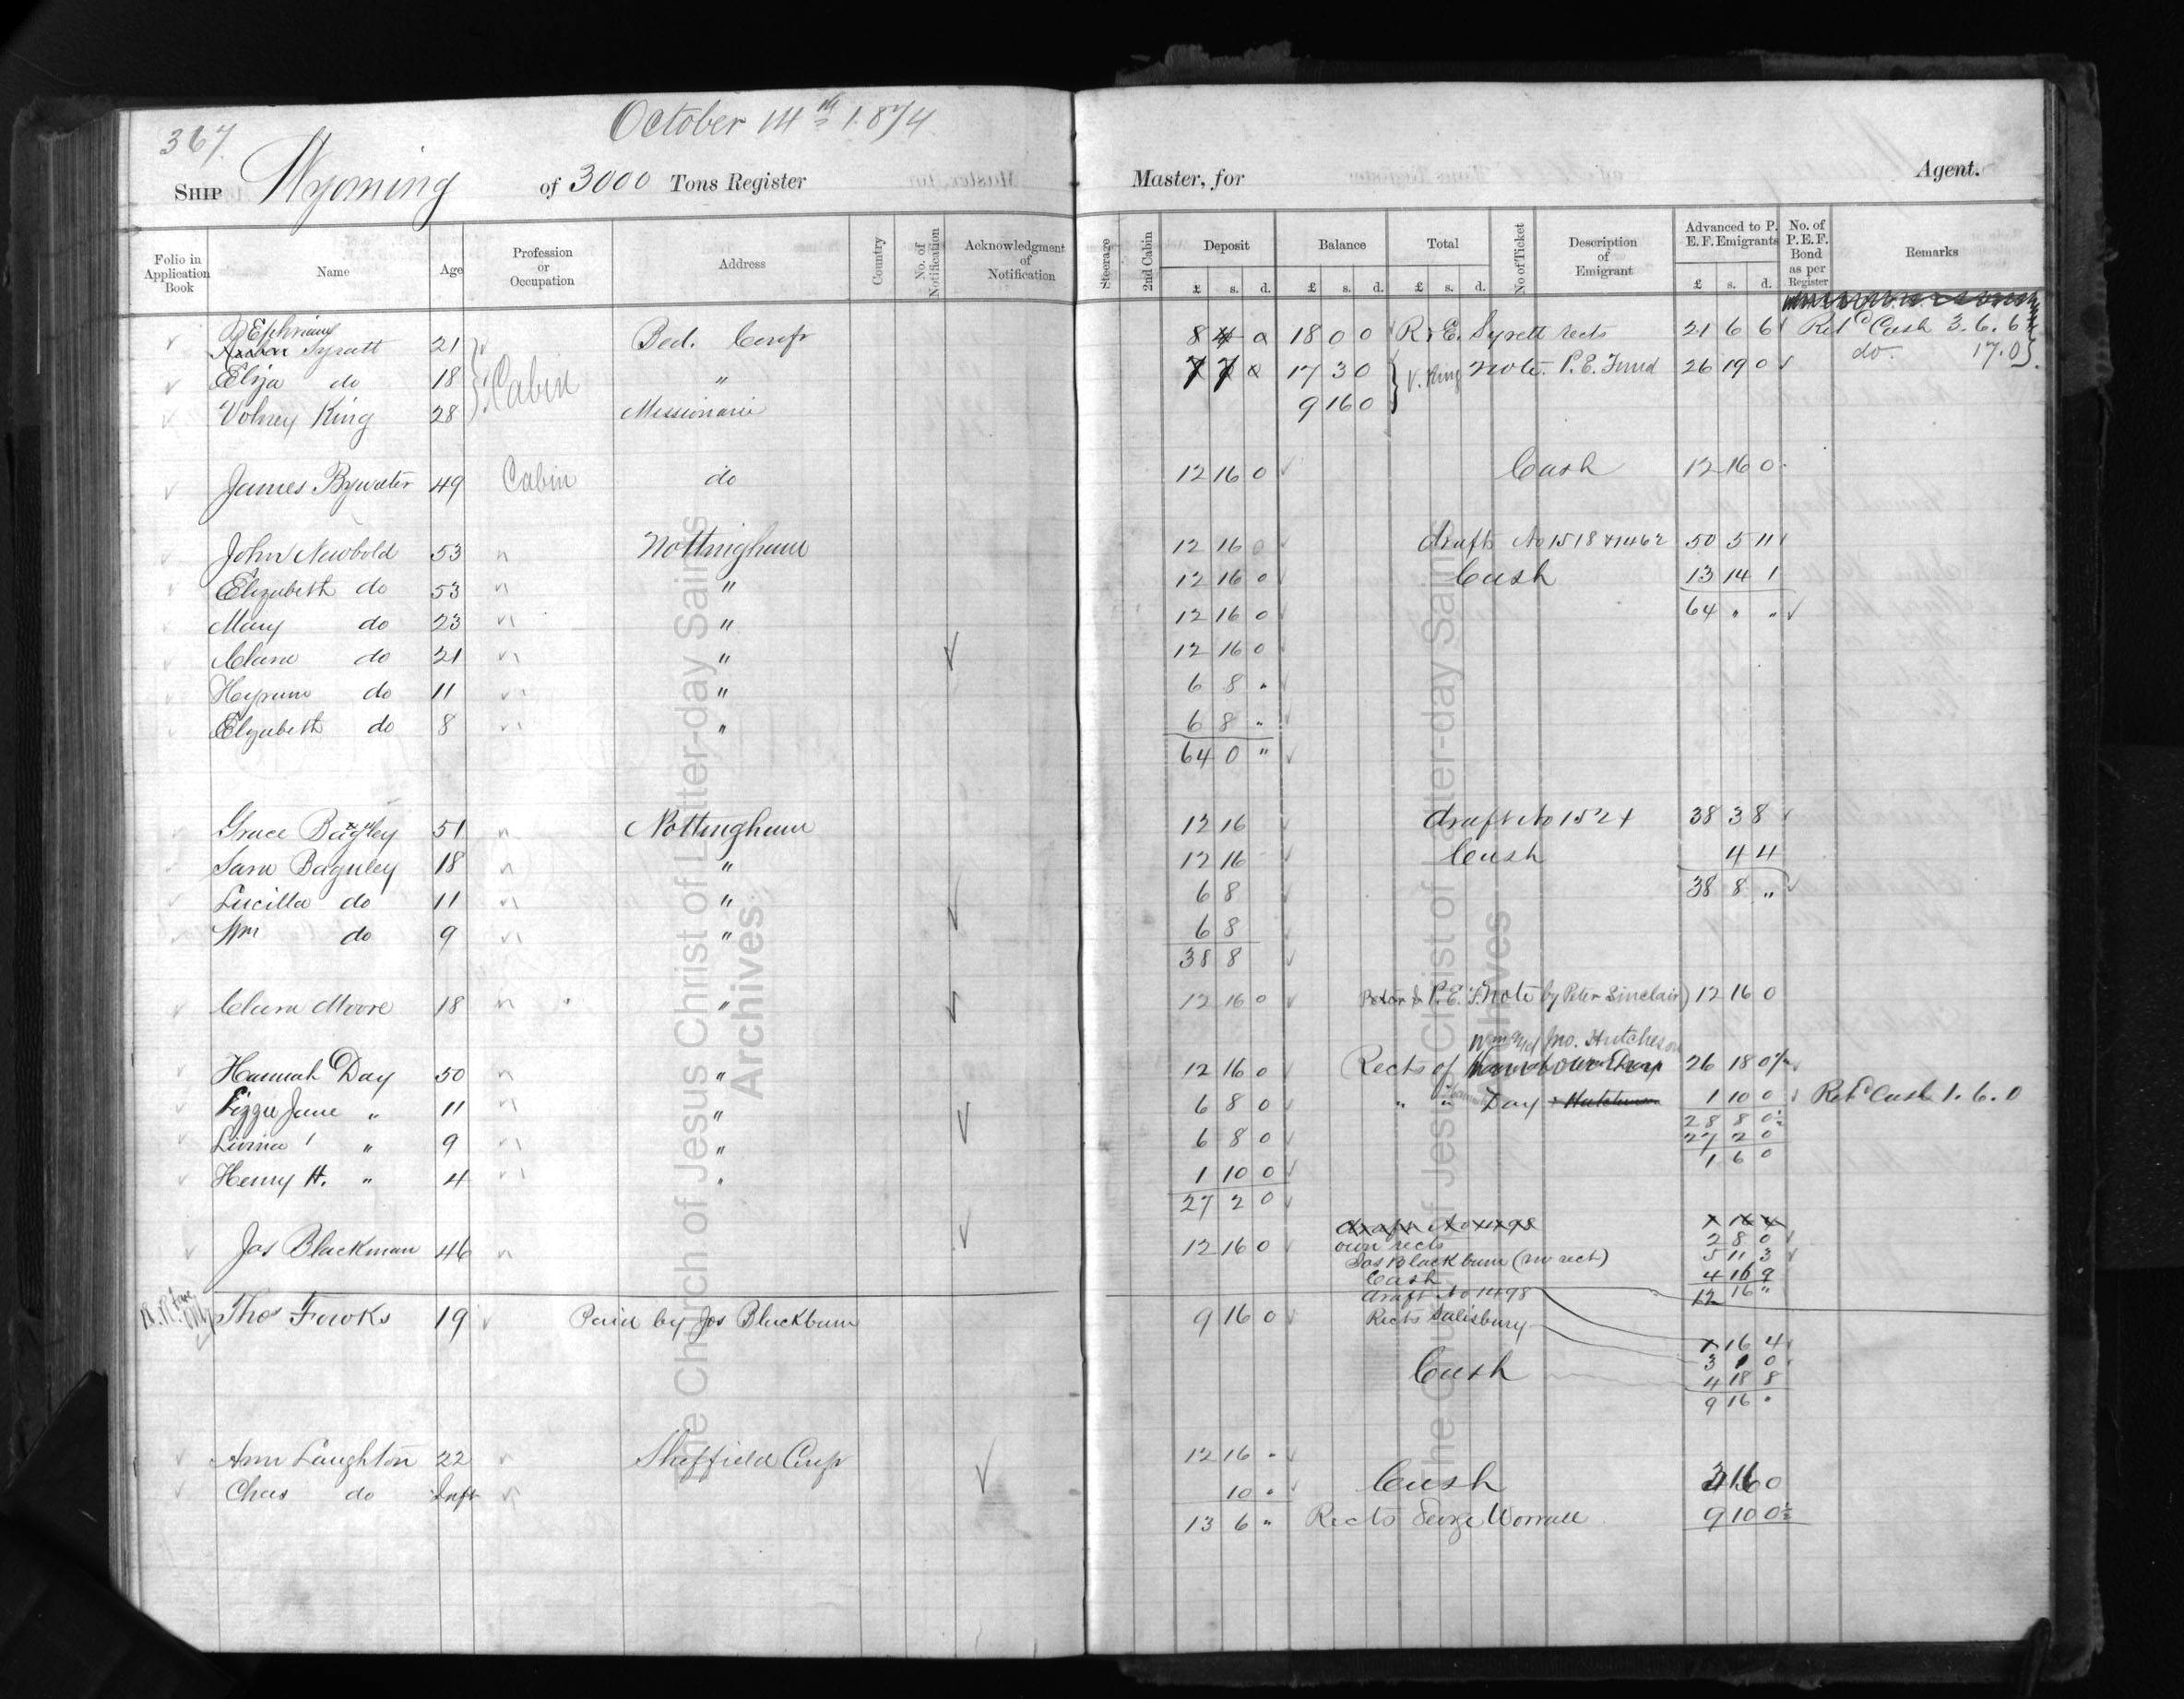 367.
October 14th 1874
SHIP Wyoming of 3000 Tons Register
Master, for
Agent.
Folio in Application Book
Name
Age
Profession or Occupation
Address
Country
No. of Notification
Acknowledgment of Notification
Steerage
2nd Cabin
Deposit
Balance
Total
No of Ticket
Description of Emigrant
Advanced to P. E. F. Emigrants
No. of P. E. F. Bond as per Register
Remarks
£ s. d. £ s. d. £ s. d. £ s. d.
Ephriam
Syratt 21 Bed. Conf 8 4 0 18 0 0 R & E. Syrett rects 21 6 6 Retd Cash 3. 6. 6
Eliza do 18 Cabin " 7 7 0 17 3 0 V. King note P. E. Fund 26 19 0 do. 17. 0
Volney King 28 Missionarie 9 16 0
James Bywater 49 Cabin do 12 16 0 Cash 12 16 0
John Newbold 53 " Nottingham 12 16 0 drafts No 1518 & 1462 50 5 11
Elizabeth do 53 " " 12 16 0 Cash 13 14 1
Mary do 23 " " 12 16 0 64 " "
Clara do 21 " " 12 16 0
Hyrum do 11 " " 6 8 "
Elizabeth do 8 " " 6 8 "
64 0 "
Grace Bagley 51 " Nottingham 12 16 draft No 1524 38 3 8
Sara Baguley 18 " " 12 16 Cash 4 4
Lucilla do 11 " " 6 8 38 8 "
Wm do 9 " " 6 8
38 8
Clara Moore 18 " " 12 16 0 P. E. F. note by Peter Sinclair) 12 16 0
Wm and Jno. Hutcheson
Hannah Day 50 " " 12 16 0 Rects of 26 18 0½
Lizzie Jane " 11 " " 6 8 0 " " Day 1 10 0 Retd Cash 1. 6. 0
28 8 0½
Livina " 9 " " 6 8 0 27 2 0
1 6 0
Henry H. " 4 " " 1 10 0
27 2 0
draft No 1498 1 16 4
Jos Blackman 46 " 12 16 0 own rects 2 8 0
Jos Blackburn (no rect) 5 11 3
Cash 4 16 9
draft No 1498 12 16 "
R. R. fare only Thos Fowks 19 Paid by Jos Blackburn 9 16 0 Rects Salisbury
1 16 4
3 1 0
Cash 4 18 8
9 16 "
Ann Laughton 22 " Sheffield Conf 12 16 "
Chas do Inft " 10 " Cash 3 16 0
13 6 " Rects George Worrall 9 10 0½
The Church of Jesus Christ of Latter-day Saints
Archives
The Church of Jesus Christ of Latter-day Saints
Archives